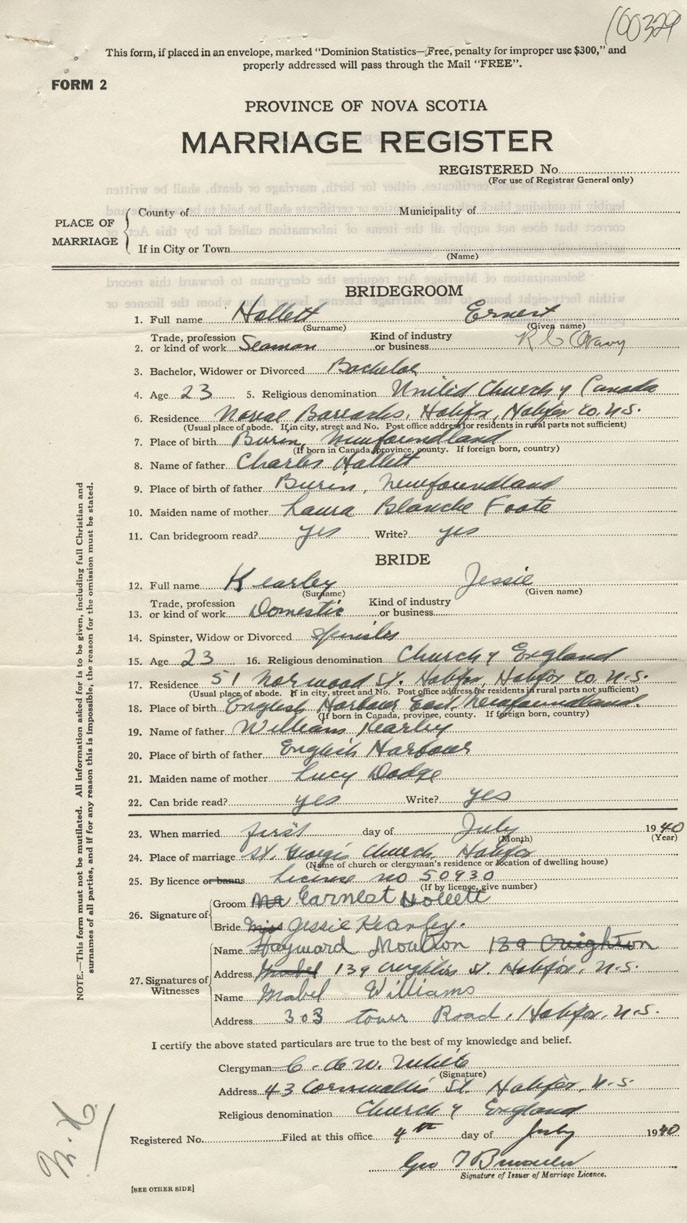 100329
This form, if placed in an envelope, marked "Dominion Statistics—Free, penalty for improper use $300," and
properly addressed will pass through the Mail "FREE".
FORM 2
PROVINCE OF NOVA SCOTIA
MARRIAGE REGISTER
REGISTERED No.
(For use of Registrar General only)
PLACE OF MARRIAGE
County of Municipality of
If in City or Town
(Name)
BRIDEGROOM
1. Full name Hollett Ernest
(Surname) (Given name)
2. Trade, profession or kind of work Seaman Kind of industry or business R. C. Navy
3. Bachelor, Widower or Divorced Bachelor
4. Age 23 5. Religious denomination United Church of Canada
6. Residence Naval Barracks, Halifax, Halifax Co. N.S.
(Usual place of abode. If in city, street and No. Post office address for residents in rural parts not sufficient)
7. Place of birth Burin, Newfoundland
(If born in Canada, province, county. If foreign born, country)
8. Name of father Charles Hollett
9. Place of birth of father Burin, Newfoundland
10. Maiden name of mother Laura Blanche Foote
11. Can bridegroom read? yes Write? yes
BRIDE
12. Full name Kearley Jessie
(Surname) (Given name)
13. Trade, profession or kind of work Domestic Kind of industry or business
14. Spinster, Widow or Divorced Spinster
15. Age 23 16. Religious denomination Church of England
17. Residence 51 Norwood St. Halifax, Halifax Co. N.S.
(Usual place of abode. If in city, street and No. Post office address for residents in rural parts not sufficient)
18. Place of birth English Harbour East, Newfoundland.
(If born in Canada, province, county. If foreign born, country)
19. Name of father William Kearley
20. Place of birth of father English Harbour
21. Maiden name of mother Lucy Dodge
22. Can bride read? yes Write? yes
23. When married first day of July 1940
(Month) (Year)
24. Place of marriage St. George's Church, Halifax
(Name of church or clergyman's residence or location of dwelling house)
25. By licence or banns License no 50930
(If by license, give number)
26. Signature of
Groom Mr Earnest Hollett
Bride Miss Jessie Kearley.
27. Signatures of Witnesses
Name Hayward Moulton 139 Creighton
Address Mabel 139 Creighton St. Halifax, N.S.
Name Mabel Williams
Address 303 tower Road, Halifax, N.S.
I certify the above stated particulars are true to the best of my knowledge and belief.
Clergyman C. de W. White
(Signature)
Address 43 Cornwallis St. Halifax, N.S.
Religious denomination Church of England
Registered No. Filed at this office 4th day of July 1940
Geo
Signature of Issuer of Marriage Licence.
[SEE OTHER SIDE]
NOTE.—This form must not be mutilated. All information asked for is to be given, including full Christian and
surnames of all parties, and if for any reason this is impossible, the reason for the omission must be stated.